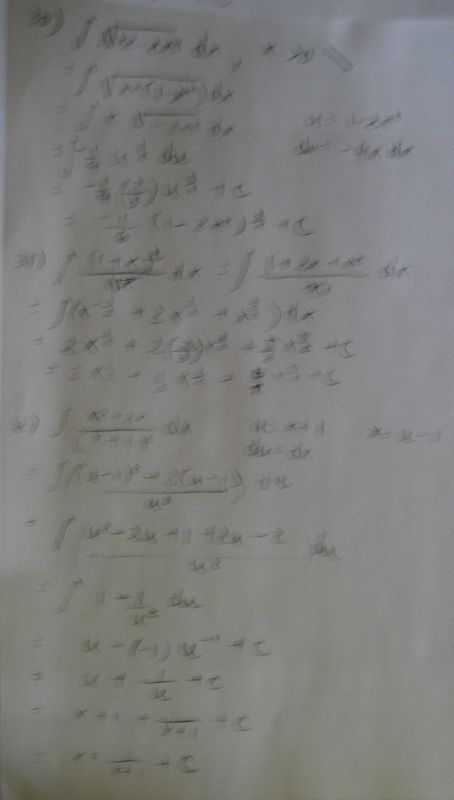 30) ∫ √(x² - 2x⁴) dx, x > 0
= ∫ √(x²(1-2x²)) dx
= ∫ x √(1-2x²) dx   u = 1-2x²
= ∫ -1/4 u^(1/2) du   du = -4x dx
= -1/4 (2/3) u^(3/2) + C
= -1/6 (1-2x²)^(3/2) + C
31) ∫ (1+x)²/√x dx = ∫ (1+2x+x²)/√x dx
= ∫ (x^(-1/2) + 2x^(1/2) + x^(3/2)) dx
= 2x^(1/2) + 2(2/3)x^(3/2) + 2/5 x^(5/2) + C
= 2x^(1/2) + 4/3 x^(3/2) + 2/5 x^(5/2) + C
∫ (x²+2x)/(x+1)² dx   u = x+1   x = u-1
du = dx
= ∫ ((u-1)² + 2(u-1))/u² du
= ∫ (u² - 2u + 1 + 2u - 2)/u² du
= ∫ 1 - 1/u² du
= u - (-1) u⁻¹ + C
= u + 1/u + C
= x + 1 + 1/(x+1) + C
= x + 1/(x+1) + C